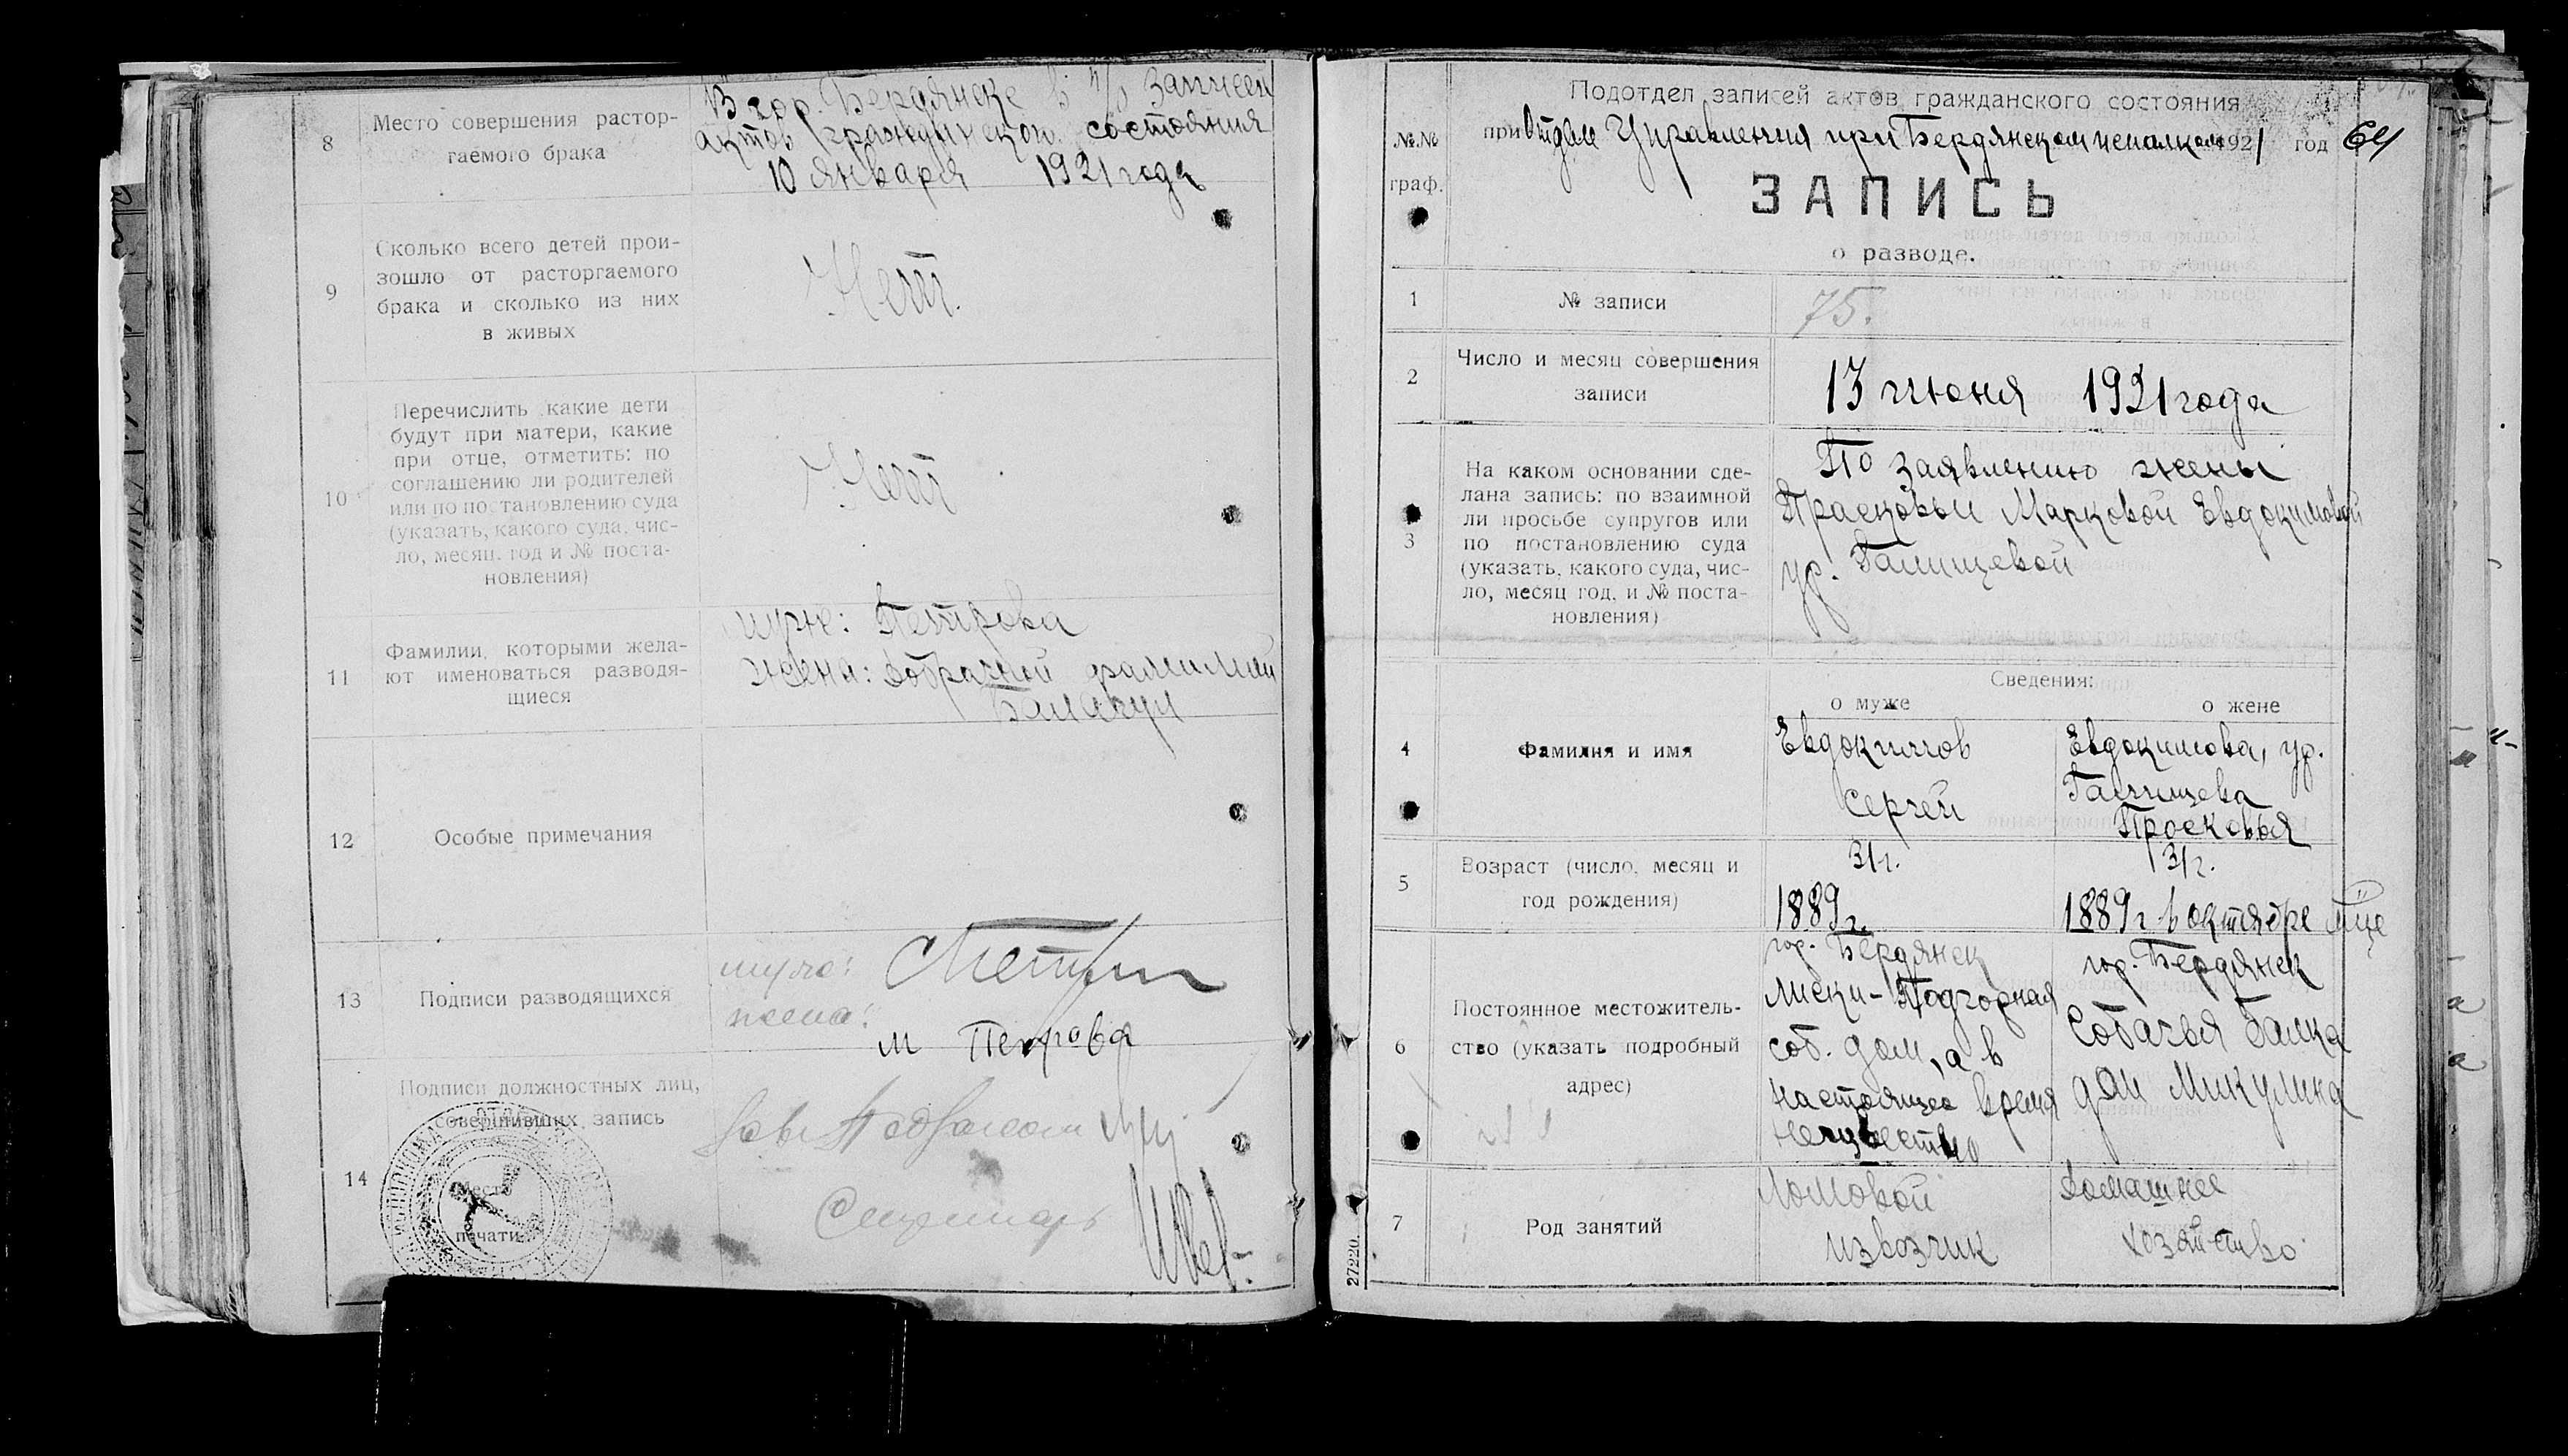 8
Место совершения растор-
гаемого брака
В гор. Бердянске в п/о Записей
актов гражданского состояния
10 января 1921 года
9
Сколько всего детей прои-
зошло от расторгаемого
брака и сколько из них
в живых
Нет.
10
Перечислить какие дети
будут при матери, какие
при отце, отметить: по
соглашению ли родителей
или по постановлению суда
(указать, какого суда, чис-
ло, месяц, год и № поста-
новления)
Нет
11
Фамилии, которыми жела-
ют именоваться разводя-
щиеся
муж: Петрова
жена: добрачной фамилией
12
Особые примечания
13
Подписи разводящихся
муж:
жена:
М Петрова
14
Подписи должностных лиц,
совершивших запись
Зав. Подотделом
Секретарь
Место
печати
№№
граф.
Подотдел записей актов гражданского состояния
при Отделе Управления при Бердянском исполкоме 1921 год 64
ЗАПИСЬ
о разводе.
1
№ записи
75.
2
Число и месяц совершения
записи
13 июня 1921 года
3
На каком основании сде-
лана запись: по взаимной
ли просьбе супругов или
по постановлению суда
(указать, какого суда, чис-
ло, месяц год, и № поста-
новления)
По заявлению жены
Прасковьи Марковой Евдокимовой
ур. Галищевой
Сведения:
о муже
о жене
4
Фамилия и имя
Евдокимов
Сергей
Евдокимова, ур.
Галищева
Просковья
5
Возраст (число, месяц и
год рождения)
31 г.
1889 г.
31 г.
1889 г в октябре м-це
6
Постоянное местожитель-
ство (указать подробный
адрес)
гор. Бердянск
Лиски-Подгорная
соб. дом, а в
настоящее время
неизвестно
гор. Бердянск
Собачья балка
дом Микулина
7
Род занятий
Ломовой
извозчик
Домашнее
хозяйство
27220.